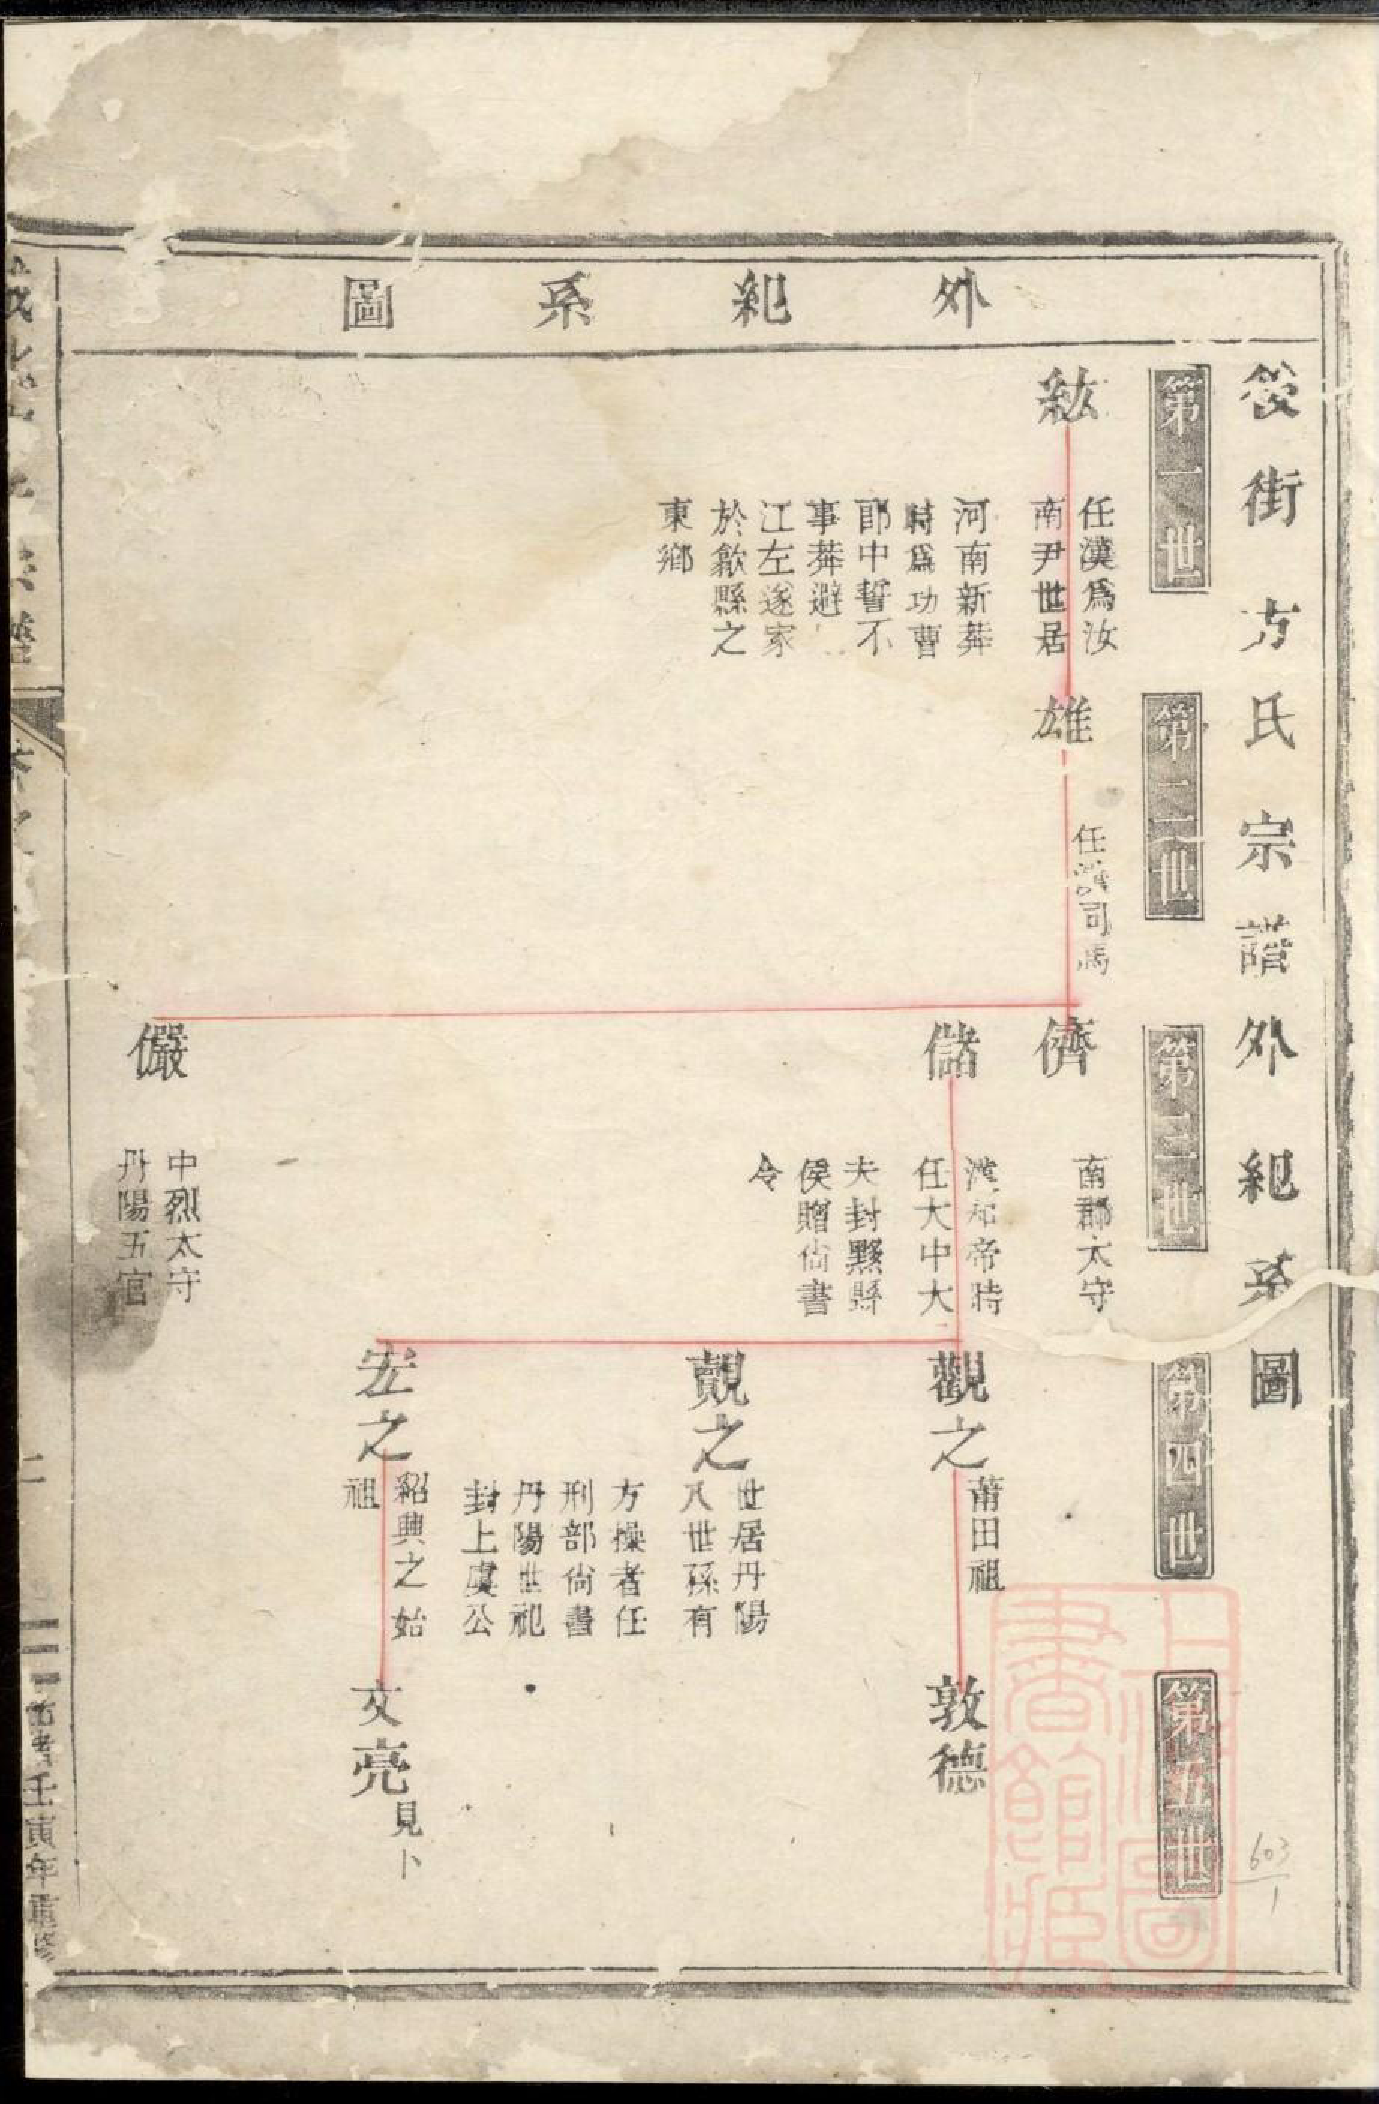 後街方氏宗譜外紀系圖
外紀系圖
第一世
紘
任漢爲汝
南尹世居
河南新莽
時爲功曹
郎中誓不
事莽避
江左遂家
於歙縣之
東鄉
第二世
雄
任 司馬
第三世
儕
南郡太守
儲
漢和帝時
任大中大
夫封黟縣
侯贈尙書
令
儼
中烈太守
丹陽五官
第四世
觀之
莆田祖
覿之
世居丹陽
八世孫有
方操者任
刑部尙書
丹陽世祀
封上虞公
宏之
紹興之始
祖
第五世
敦德
文亮
見卜
上海圖書館藏
603/1
壬寅年重修